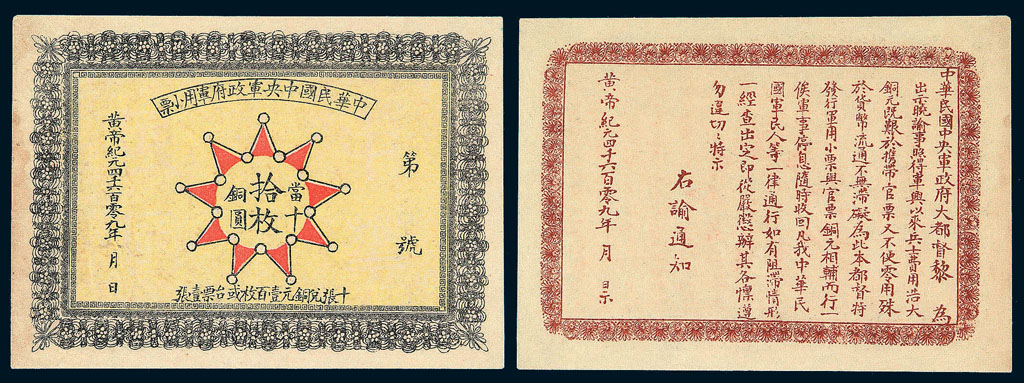 中華民國中央軍政府軍用小票
第
號
當十
拾枚
銅圓
黃帝紀元四千六百零九年 月 日
十張兌銅元壹百枚或台票壹張
中華民國中央軍政府大都督黎 為
出示曉諭事照得軍興以來兵士費用浩大
銅元旣艱於攜帶官票又不便零用殊
於貨幣流通不無滯礙為此本都督特
發行軍用小票與官票銅元相輔而行一
俟軍事停息隨時收回凡我中華民
國軍民人等一律通行如有阻滯情形
一經查出定即從嚴懲辦其各懍遵
勿違切切特示
右諭通知
黃帝紀元四千六百零九年 月 日示